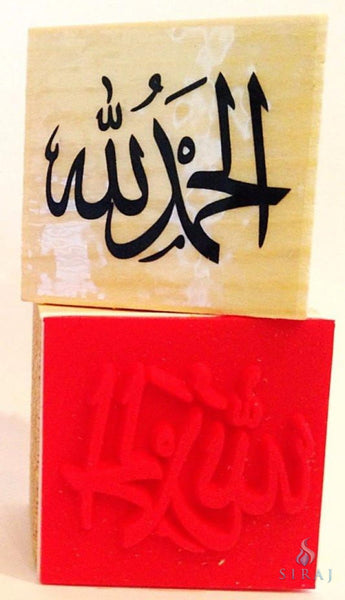 الحمد لله
SIRAJ